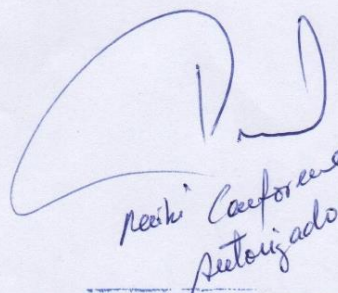 Recibi Conforme
Autorizado